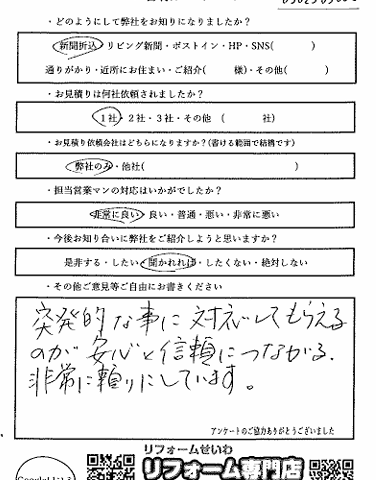 ・どのようにして弊社をお知りになりましたか？
新聞折込・リビング新聞・ポストイン・HP・SNS( )
通りがかり・近所にお住まい・ご紹介( 様)・その他( )
・お見積りは何社依頼されましたか？
1社・2社・3社・その他 ( 社)
・お見積り依頼会社はどちらになりますか？(書ける範囲で結構です)
弊社のみ・他社( )
・担当営業マンの対応はいかがでしたか？
非常に良い・良い・普通・悪い・非常に悪い
・今後お知り合いに弊社をご紹介しようと思いますか？
是非する・したい・聞かれれば・したくない・絶対しない
・その他ご意見等ご自由にお書きください
突発的な事に対応してもらえる
のが安心と信頼につながる.
非常に頼りにしています。
アンケートのご協力ありがとうございました
リフォームせいわ
リフォーム専門店